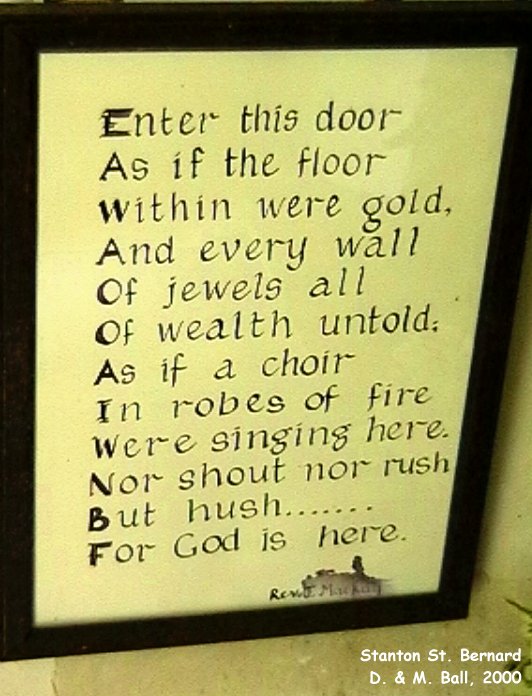 Enter this door
As if the floor
Within were gold,
And every wall
Of jewels all
Of wealth untold;
As if a choir
In robes of fire
Were singing here.
Nor shout nor rush
But hush.......
For God is here.
Stanton St. Bernard
D. & M. Ball, 2000